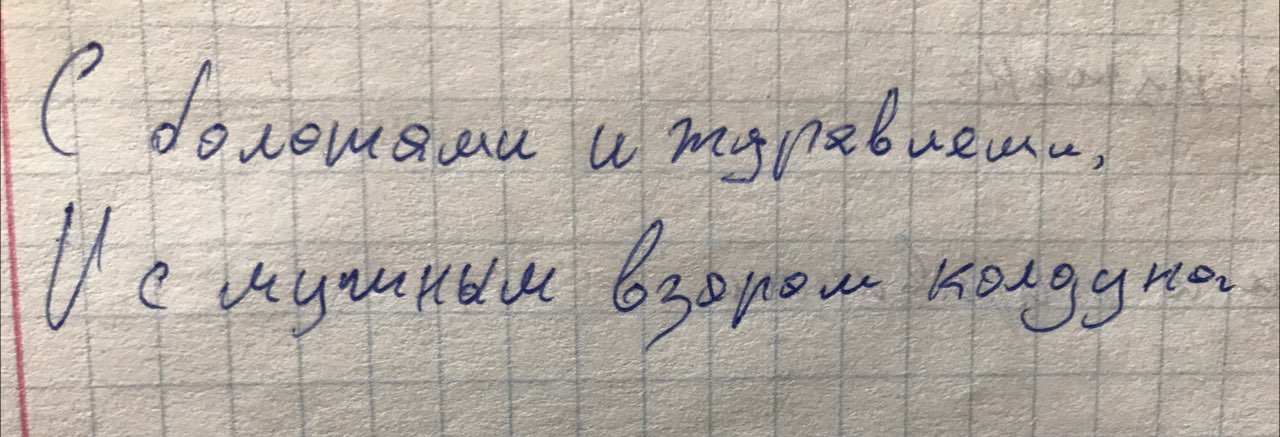 С болотами и журавлями,
И с мутным взором колдуна